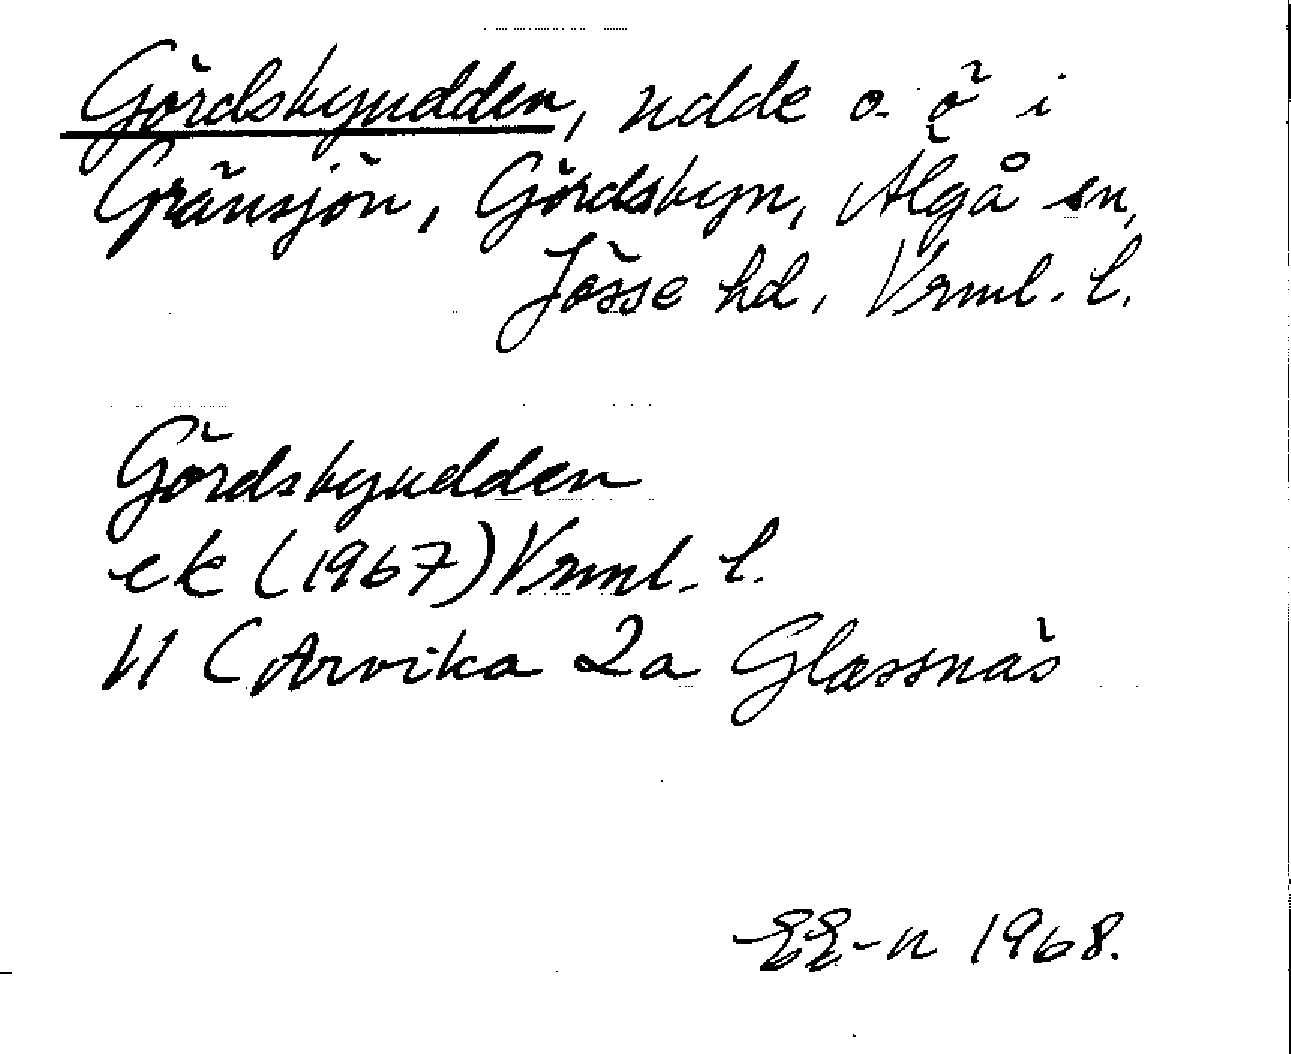 Gördsbyudden, udde o. ö i
Gränsjön, Gördsbyn, Älgå sn,
Jösse hd, Vrml. l.
Gördsbyudden
ek (1967) Vrml. l.
11 C Arvika 2a Glassnäs
EE-n 1968.